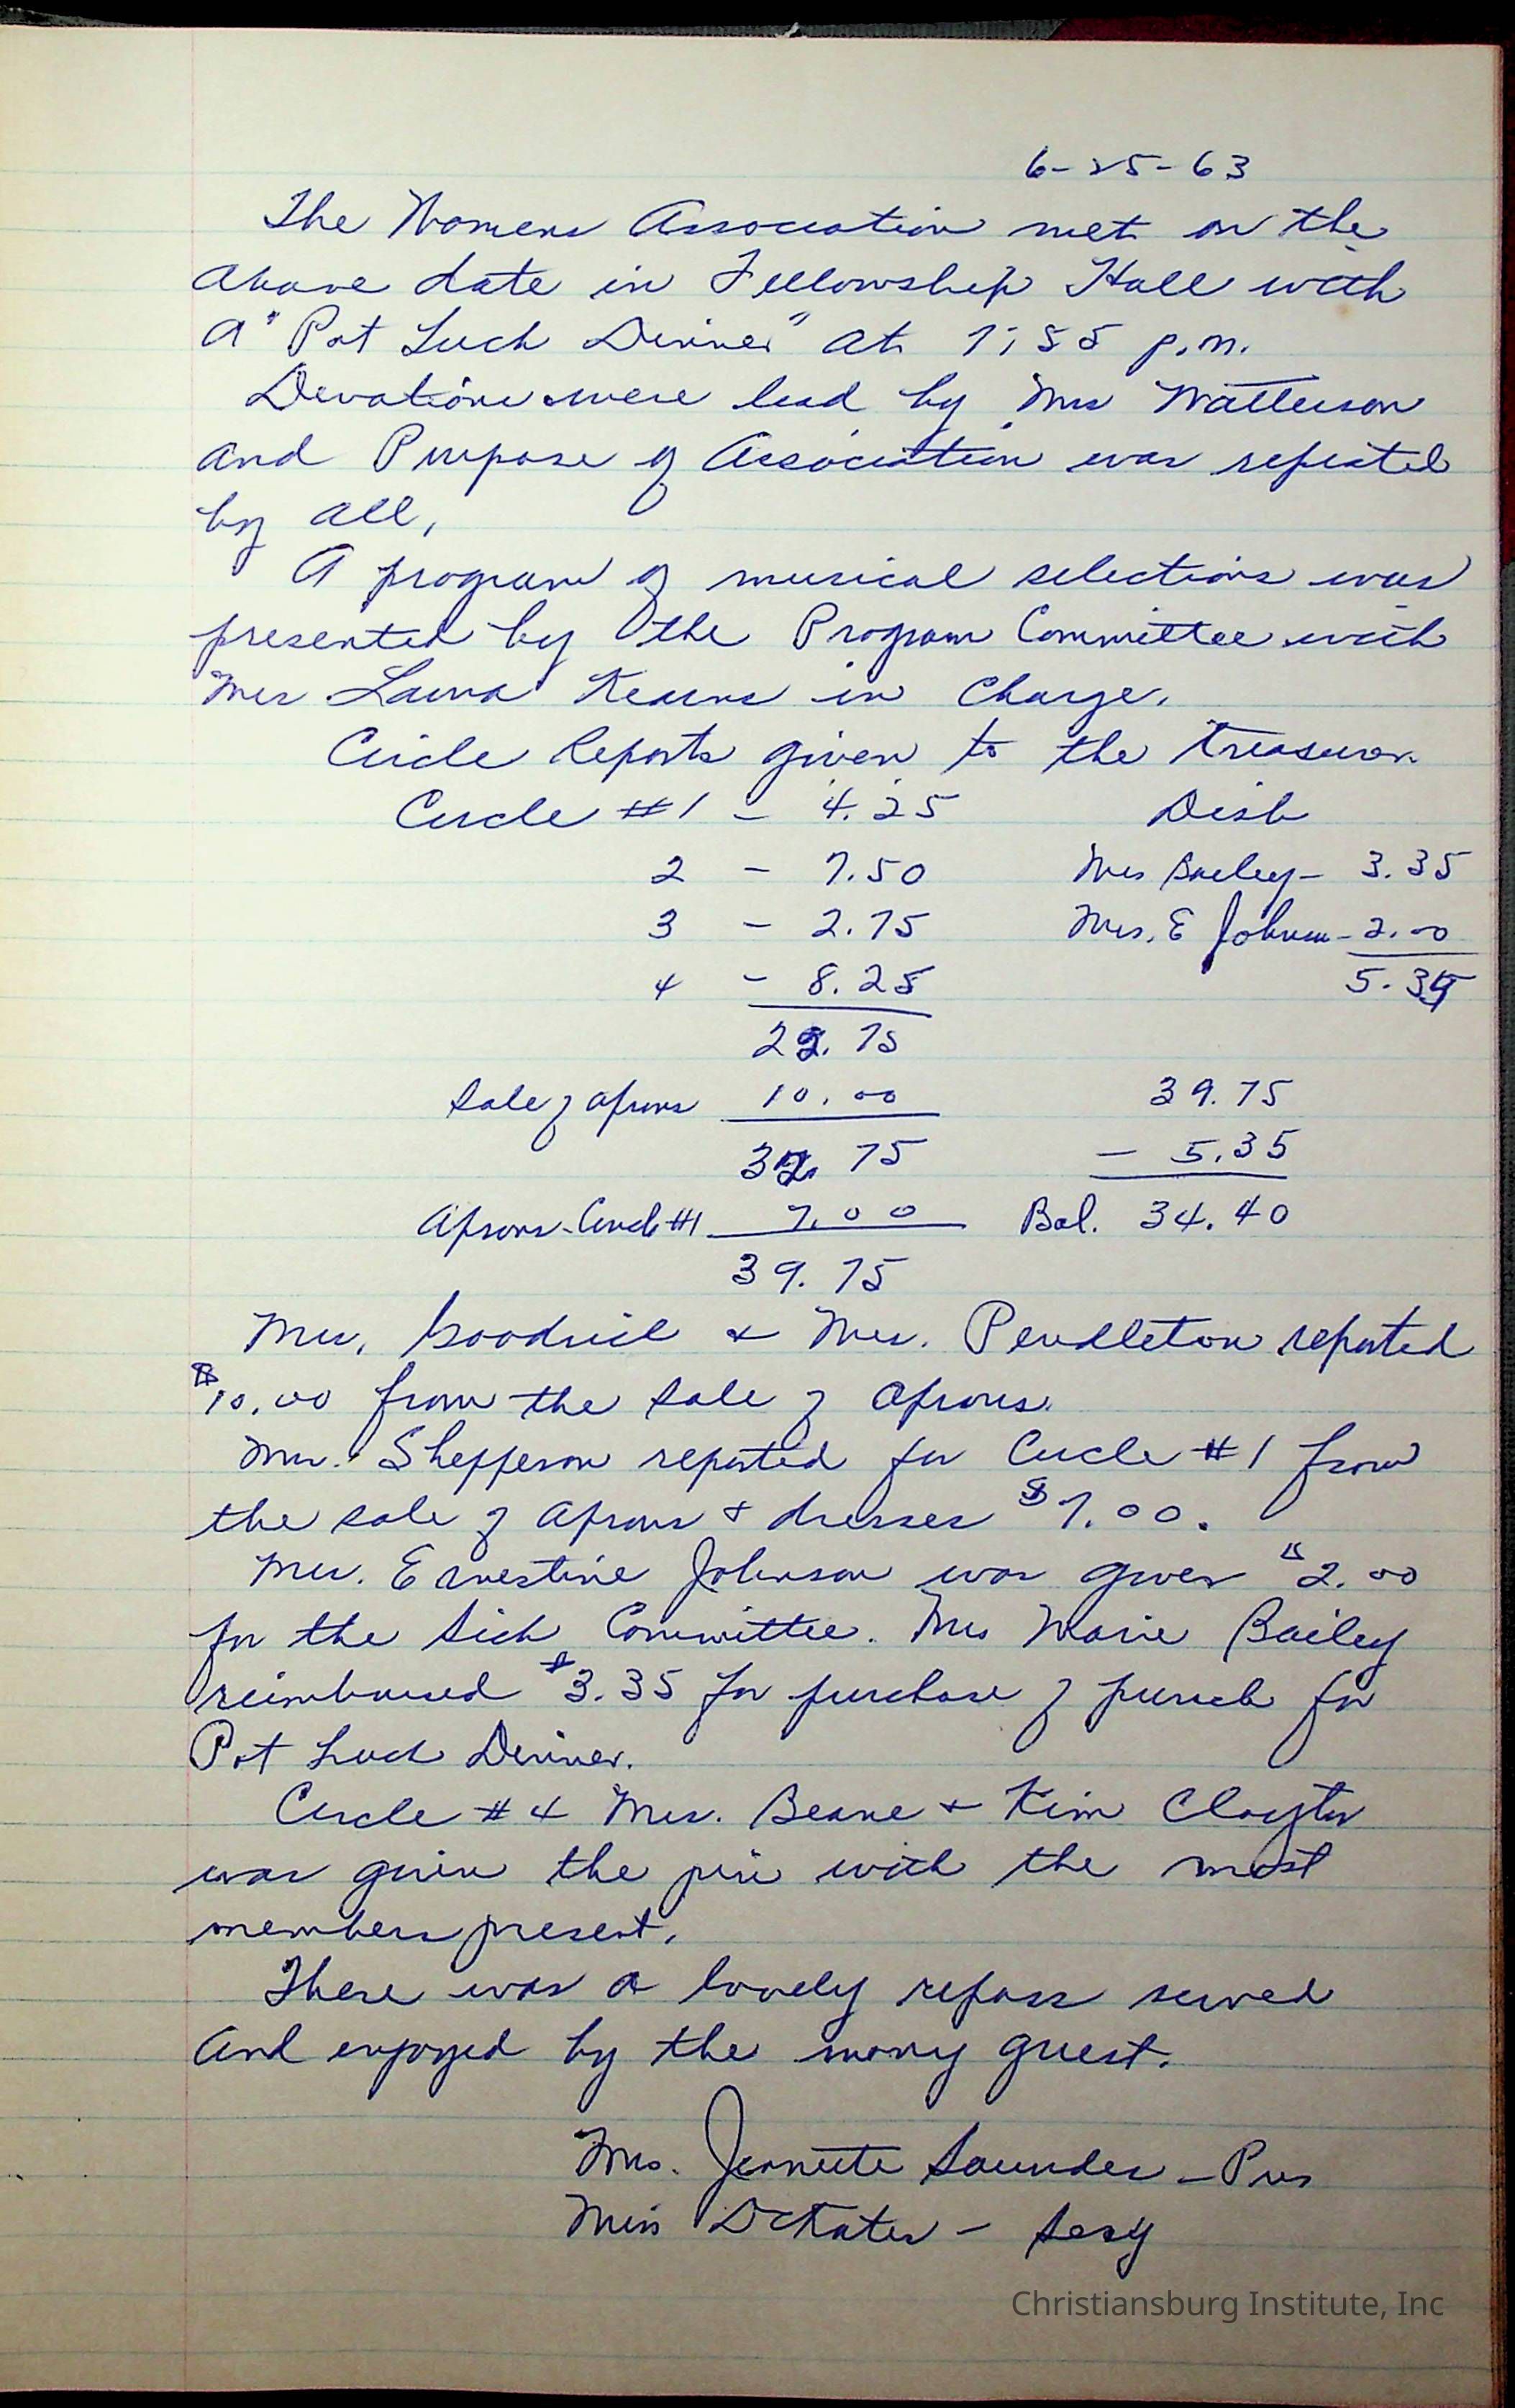 6-25-63
The Womens Association met on the
above date in Fellowship Hall with
a "Pot Luck Dinner" at 7:55 p.m.
Devotions were lead by Mrs Watterson
and Purpose of Association was repeated
by all.
A program of musical selections was
presented by the Program Committee with
Mrs Laura Kearns in charge.
Circle Reports given to the Treasurer.
Circle #1 - 4.25 Disb
2 - 7.50 Mrs Bailey - 3.35
3 - 2.75 Mrs. E Johnson - 2.00
4 - 8.25 5.35
22.75
Sale of aprons 10.00 39.75
32.75 - 5.35
Aprons - Circle #1 7.00 Bal. 34.40
39.75
Mrs. Goodwil & Mrs. Pendleton reported
$10.00 from the sale of aprons.
Mrs. Shepperson reported for Circle #1 from
the sale of aprons & dresses $7.00.
Mrs. Ernestine Johnson was given $2.00
for the Sick Committee. Mrs Marie Bailey
reimbursed $3.35 for purchase of punch for
Pot Luck Dinner.
Circle #4 Mrs. Beane & Kim Clayton
was given the pin with the most
members present.
There was a lovely repass served
and enjoyed by the many guest.
Mrs. Jeanette Saunders - Pres
Miss D Kates - Secy
Christiansburg Institute, Inc